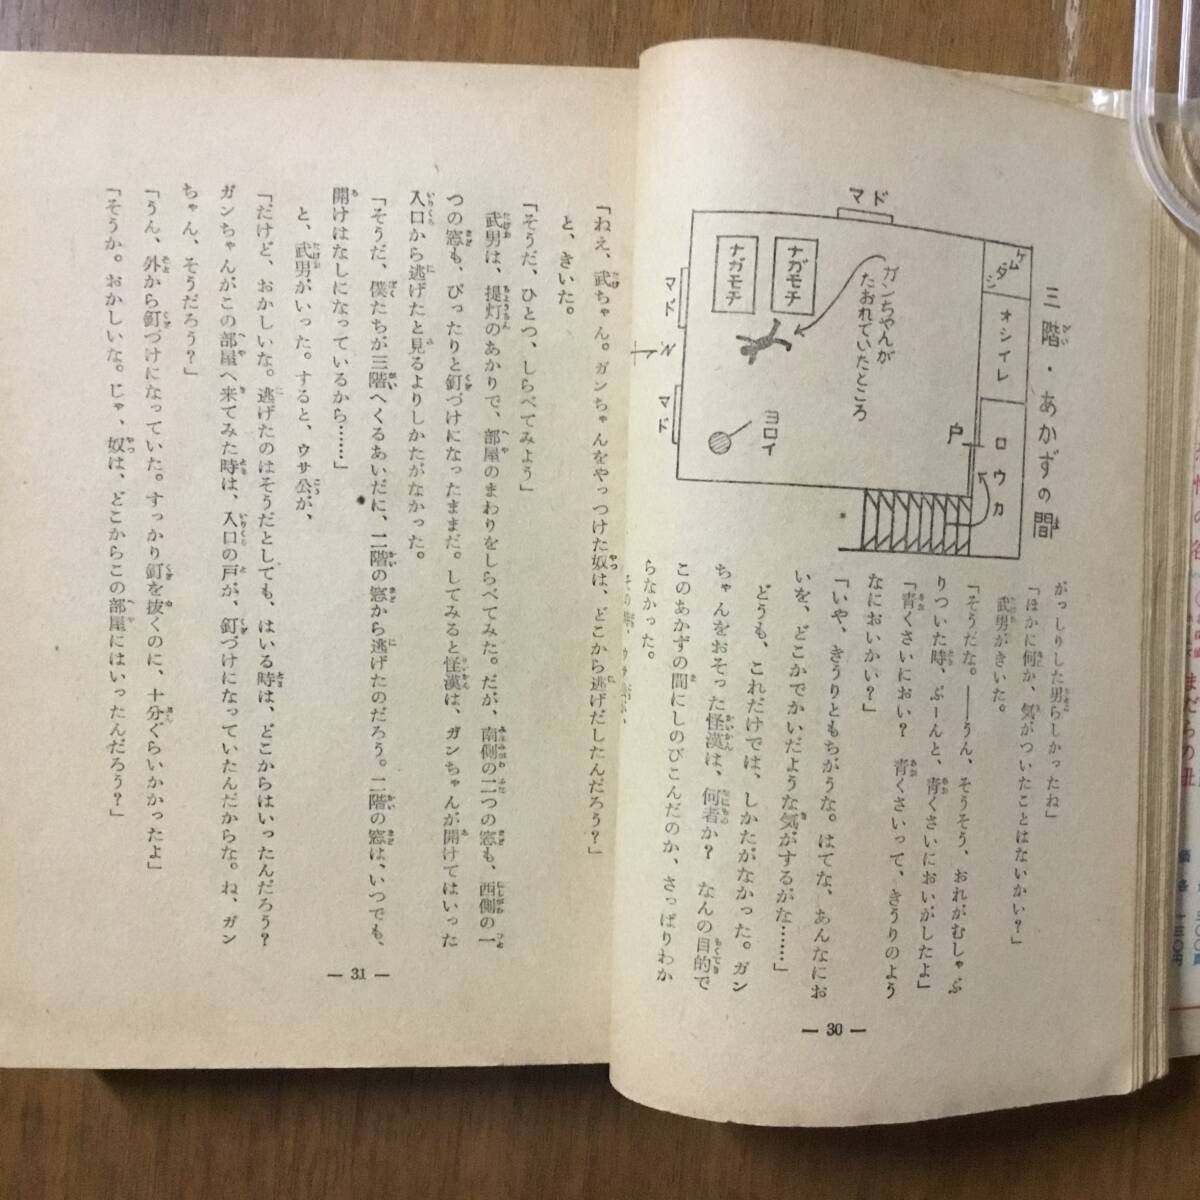 三階・あかずの間
ケムダシ
オシイレ
ロウカ
戸
マド
ナガモチ
ナガモチ
ガンちゃんが
たおれていたところ
ヨロイ
マド
マド
N
がっしりした男らしかったね」
「ほかに何か、気がついたことはないかい?」
武男がきいた。
「そうだな。――うん、そうそう、おれがむしゃぶ
りついた時、ぷーんと、青くさいにおいがしたよ」
「青くさいにおい? 青くさいって、きうりのよう
なにおいかい?」
「いや、きうりともちがうな。はてな、あんなにお
いを、どこかでかいだような気がするがな……」
どうも、これだけでは、しかたがなかった。ガン
ちゃんをおそった怪漢は、何者か? なんの目的で
このあかずの間にしのびこんだのか、さっぱりわか
らなかった。
— 30 —
「ねえ、武ちゃん。ガンちゃんをやっつけた奴は、どこから逃げだしたんだろう?」
と、きいた。
「そうだ、ひとつ、しらべてみよう」
武男は、提灯のあかりで、部屋のまわりをしらべてみた。だが、南側の二つの窓も、西側の一
つの窓も、ぴったりと釘づけになったままだ。してみると怪漢は、ガンちゃんが開けてはいった
入口から逃げたと見るよりしかたがなかった。
「そうだ、僕たちが三階へくるあいだに、二階の窓から逃げたのだろう。二階の窓は、いつでも、
開けはなしになっているから……」
と、武男がいった。すると、ウサ公が、
「だけど、おかしいな。逃げたのはそうだとしても、はいる時は、どこからはいったんだろう?
ガンちゃんがこの部屋へ来てみた時は、入口の戸が、釘づけになっていたんだからな。ね、ガン
ちゃん、そうだろう?」
「うん、外から釘づけになっていた。すっかり釘を抜くのに、十分ぐらいかかったよ」
「そうか。おかしいな。じゃ、奴は、どこからこの部屋にはいったんだろう?」
— 31 —